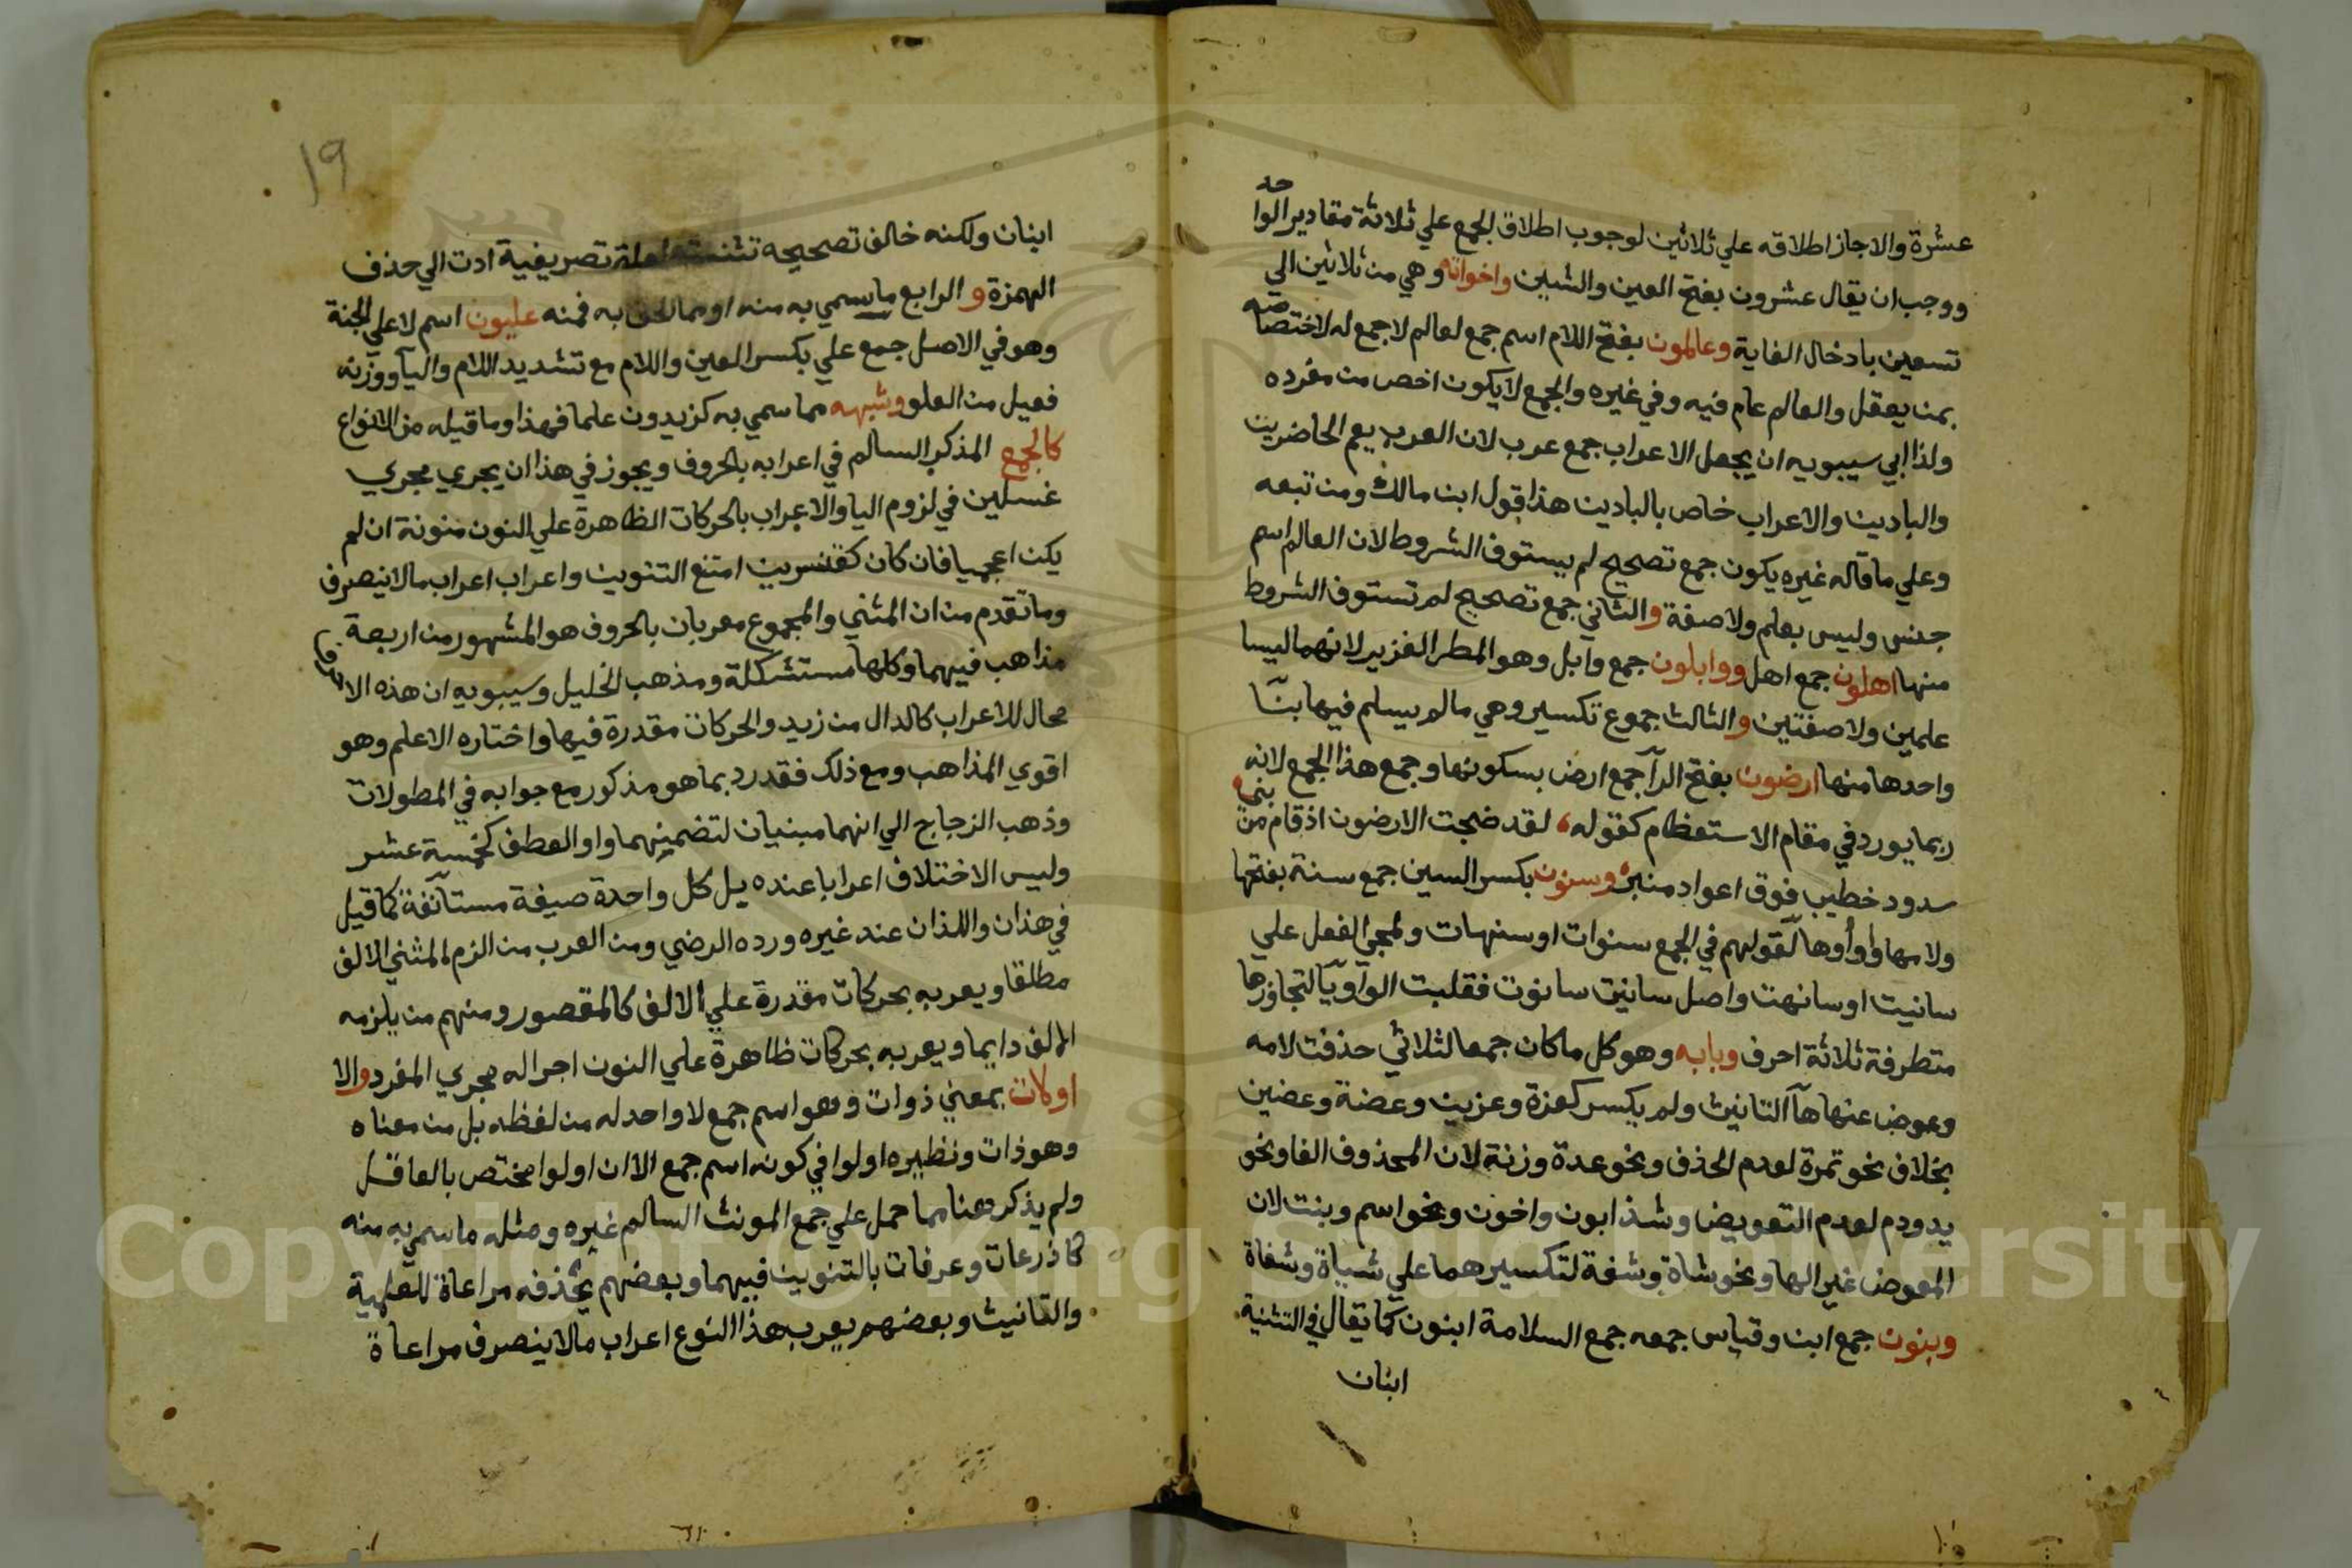 عشرة والا جاز اطلاقه علي ثلاثين لوجوب اطلاق الجمع علي ثلاثة مقادير الواحد
ووجب ان يقال عشرون بفتح العين والشين واخواته وهي من ثلاثين الي
تسعين بادخال الغاية وعالمون بفتح اللام اسم جمع لعالم لا جمع له لاختصاصه
بمن يعقل والعالم عام فيه وفي غيره والجمع لا يكون اخص من مفرده
ولذا ابي سيبويه ان يجعل الاعراب جمع عرب لان العرب يعم الحاضرين
والبادين والاعراب خاص بالبادين هذا قول ابن مالك ومن تبعه
وعلي ما قاله غيره يكون جمع تصحيح لم يستوف الشروط لان العالم اسم
جنس وليس بعلم ولا صفة والثاني جمع تصحيح لم تستوف الشروط
منها اهلون جمع اهل ووابلون جمع وابل وهو المطر الغزير لانهما ليسا
علمين ولا صفتين والثالث جموع تكسير وهي ما لم يسلم فيها بنآ
واحدها منها ارضون بفتح الرآ جمع ارض بسكونها وجمع هذا الجمع لانه
ربما يورد في مقام الاستعظام كقوله، لقد ضجت الارضون اذ قام من بني
سدود خطيب فوق اعواد منبر، وسنون بكسر السين جمع سنة بفتحها
ولامها واو أو ها لقولهم في الجمع سنوات او سنهات ولمجي الفعل علي
سانيت او سانهت واصل سانيت سانوت فقلبت الواو يآ لتجاوزها
متطرفة ثلاثة احرف وبابه وهو كل ما كان جمعا لثلاثي حذفت لامه
وعوض عنها هآ التانيث ولم يكسر كعزة وعزين وعضة وعضين
بخلاف نحو تمرة لعدم الحذف ونحو عدة وزنة لان المحذوف الفا ونحو
يد ودم لعدم التعويض وشذ ابون واخون ونحو اسم وبنت لان
المعوض غير الها ونحو شاة وشفة لتكسيرهما علي شياة وشفاة
وبنون جمع ابن وقياس جمعه جمع السلامة ابنون كما يقال في التثنية
ابنان
١٩
ابنان ولكنه خالف تصحيحه تثنيته لعلة تصريفية ادت الي حذف
الهمزة والرابع ما سمي به منه او مما الحق به فمنه عليون اسم لاعلي الجنة
وهو في الاصل جمع علي بكسر العين واللام مع تشديد اللام واليآ ووزنه
فعيل من العلو وشبهه مما سمي به كزيدون علما فهذا وما قبله من الانواع
كالجمع المذكر السالم في اعرابه بالحروف ويجوز في هذا ان يجري مجري
غسلين في لزوم اليا والاعراب بالحركات الظاهرة علي النون منونة ان لم
يكن اعجميا فان كان كقنسرين امتنع التنوين واعراب اعراب ما لا ينصرف
وما تقدم من ان المثني والمجموع معربان بالحروف هو المشهور من اربعة
مذاهب فيهما وكلها مستشكلة ومذهب الخليل وسيبويه ان هذه الاحرف
محال للاعراب كالدال من زيد والحركات مقدرة فيها واختاره الاعلم وهو
اقوي المذاهب ومع ذلك فقد رد بما هو مذكور مع جوابه في المطولات
وذهب الزجاج الي انهما مبنيان لتضمينهما واو العطف كخمسة عشر
وليس الاختلاف اعرابا عنده بل كل واحدة صيغة مستآنفة كما قيل
في هذان واللذان عند غيره ورده الرضي ومن العرب من الزم المثني الالف
مطلقا ويعربه بحركات مقدرة علي الالف كالمقصور ومنهم من يلزمه
الالف دايما ويعربه بحركات ظاهرة علي النون اجرا له مجري المفرد والا
اولات بمعني ذوات وهو اسم جمع لا واحد له من لفظه بل من معناه
وهو ذات ونظيره اولوا في كونه اسم جمع الا ان اولوا مختص بالعاقل
ولم يذكر هنا مما حمل علي جمع المونث السالم غيره ومثله ما سمي به منه
كاذرعات وعرفات بالتنوين فيهما وبعضهم يحذفه مراعاة للعلمية
والتانيث وبعضهم يعرب هذا النوع اعراب ما لا ينصرف مراعاة
Copyright © King Saud University